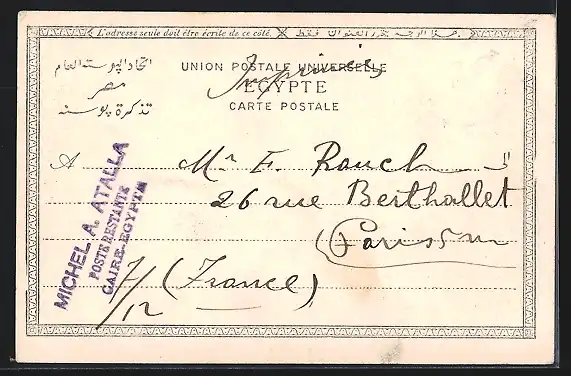 L'adresse seule doit être écrite de ce côté. هذا الوجه يحرر العنوان فقط
اتحاد البوسته العام
مصر
تذكرة بوسته
UNION POSTALE UNIVERSELLE
EGYPTE
CARTE POSTALE
Imprimés
A Mr F. Rauch الى
26 rue Berthollet
Paris
(France)
7/12
MICHEL A. ATALLA
POSTE RESTANTE
CAIRE-EGYPTE